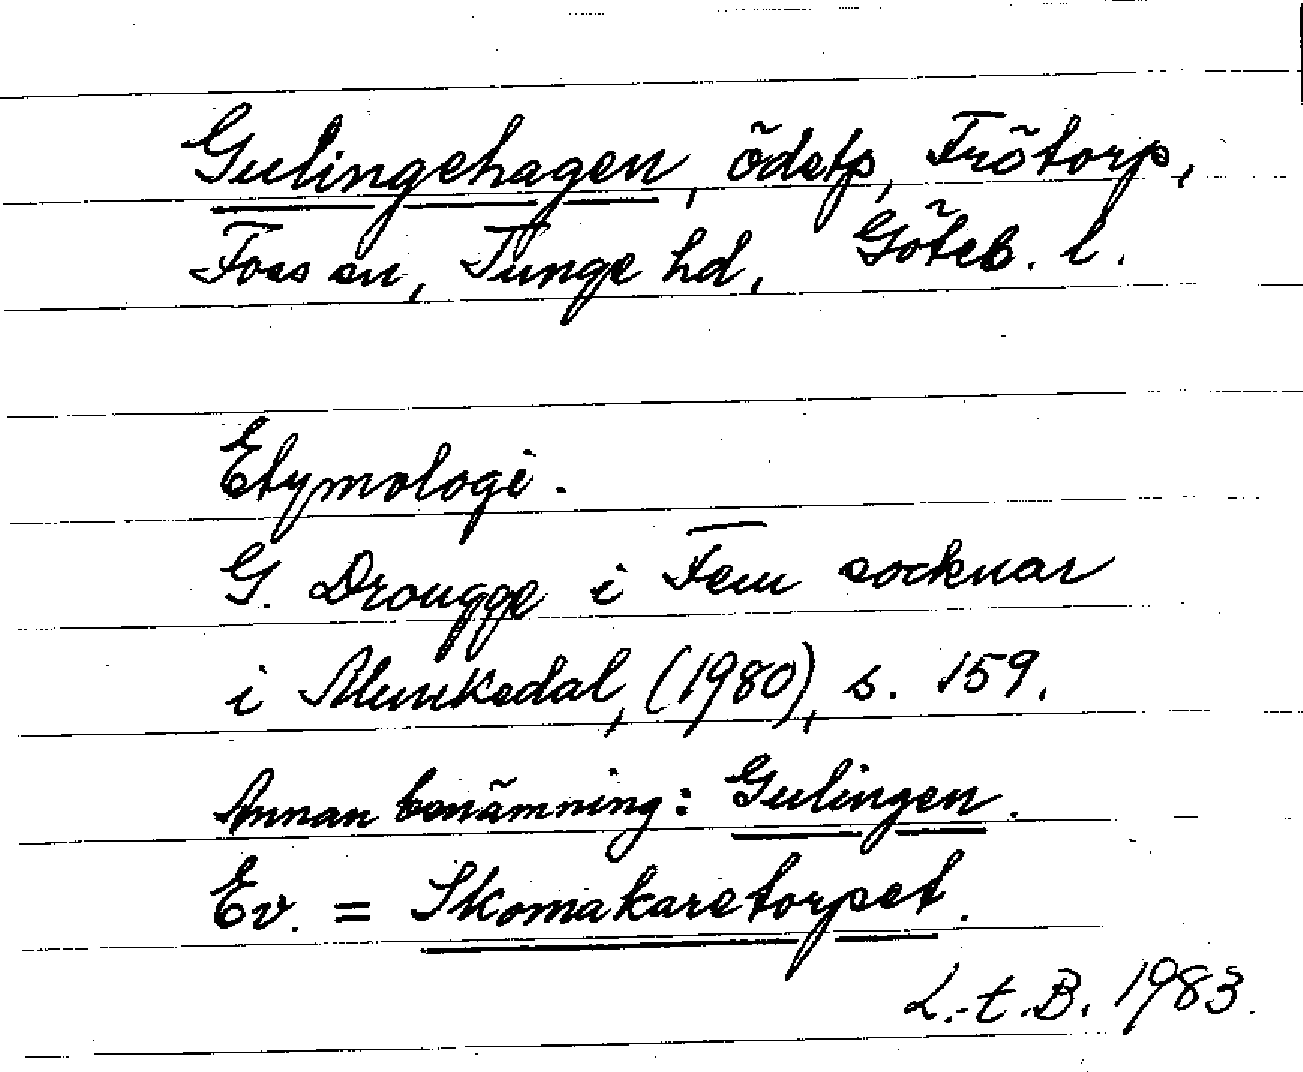 Gulingehagen, ödetp, Frötorp,
Foss sn, Tunge hd, Göteb. l.
Etymologi.
G. Drougge i Fem socknar
i Munkedal, (1980), s. 159.
Annan benämning: Gulingen.
Ev. = Skomakaretorpet.
L.-t. B. 1983.